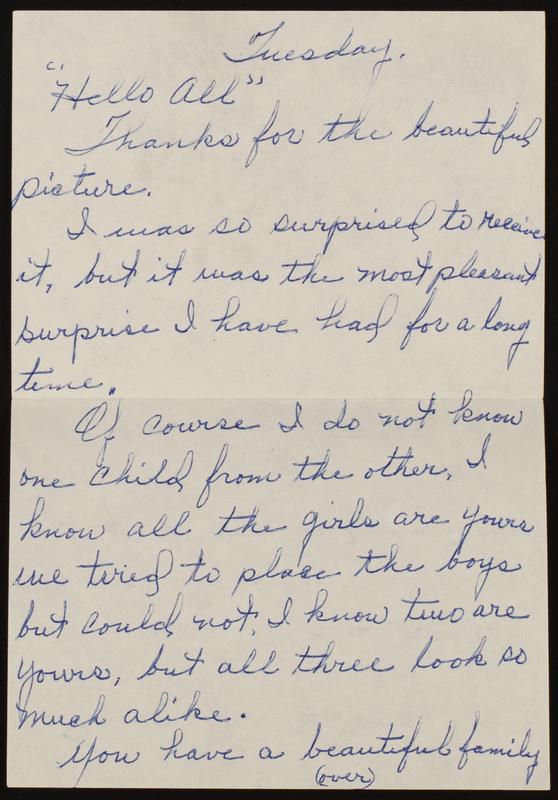 Tuesday.
"Hello All"
Thanks for the beautiful
picture.
I was so surprised to receive
it, but it was the most pleasant
surprise I have had for a long
time.
Of course I do not know
one child from the other, I
know all the girls are yours
we tried to place the boys
but could not, I know two are
yours, but all three look so
much alike.
You have a beautiful family
(over)